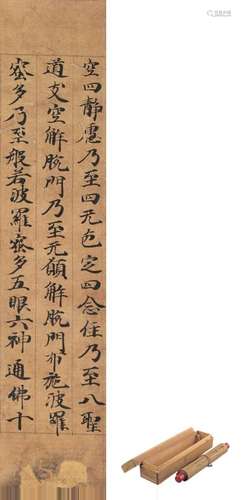 空四静慮乃至四无色定四念住乃至八聖
道支空解脱門乃至无願解脱門布施波羅
蜜多乃至般若波羅蜜多五眼六神通佛十